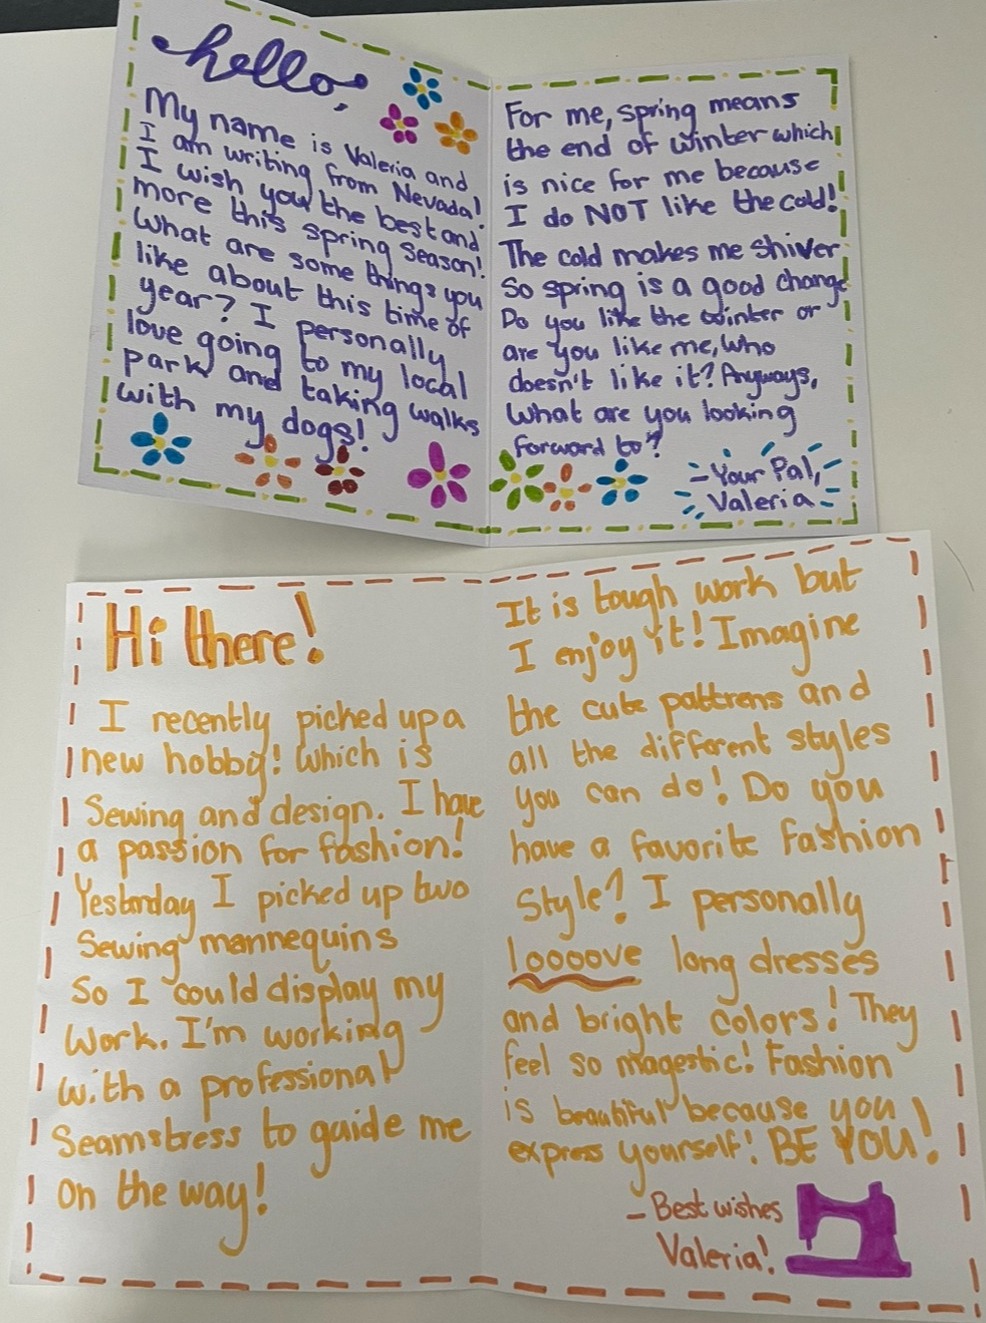 hello,
My name is Valeria and
I am writing from Nevada!
I wish you the best and
more this spring season!
What are some things you
like about this time of
year? I personally
love going to my local
park and taking walks
with my dogs!
For me, spring means
the end of winter which
is nice for me because
I do NOT like the cold!
The cold makes me shiver
So spring is a good change
Do you like the winter or
are you like me, who
doesn't like it? Anyways,
What are you looking
forward to?
- Your Pal,
Valeria
Hi there!
I recently picked up a
new hobby! Which is
Sewing and design. I have
a passion for fashion!
Yesterday I picked up two
Sewing mannequins
So I could display my
Work. I'm working
with a professional
Seamstress to guide me
on the way!
It is tough work but
I enjoy it! Imagine
the cute pattrens and
all the different styles
you can do! Do you
have a favorite fashion
Style? I personally
loooove long dresses
and bright colors! They
feel so magestic! Fashion
is beautiful because you
express yourself! BE YOU!
- Best wishes
Valeria!